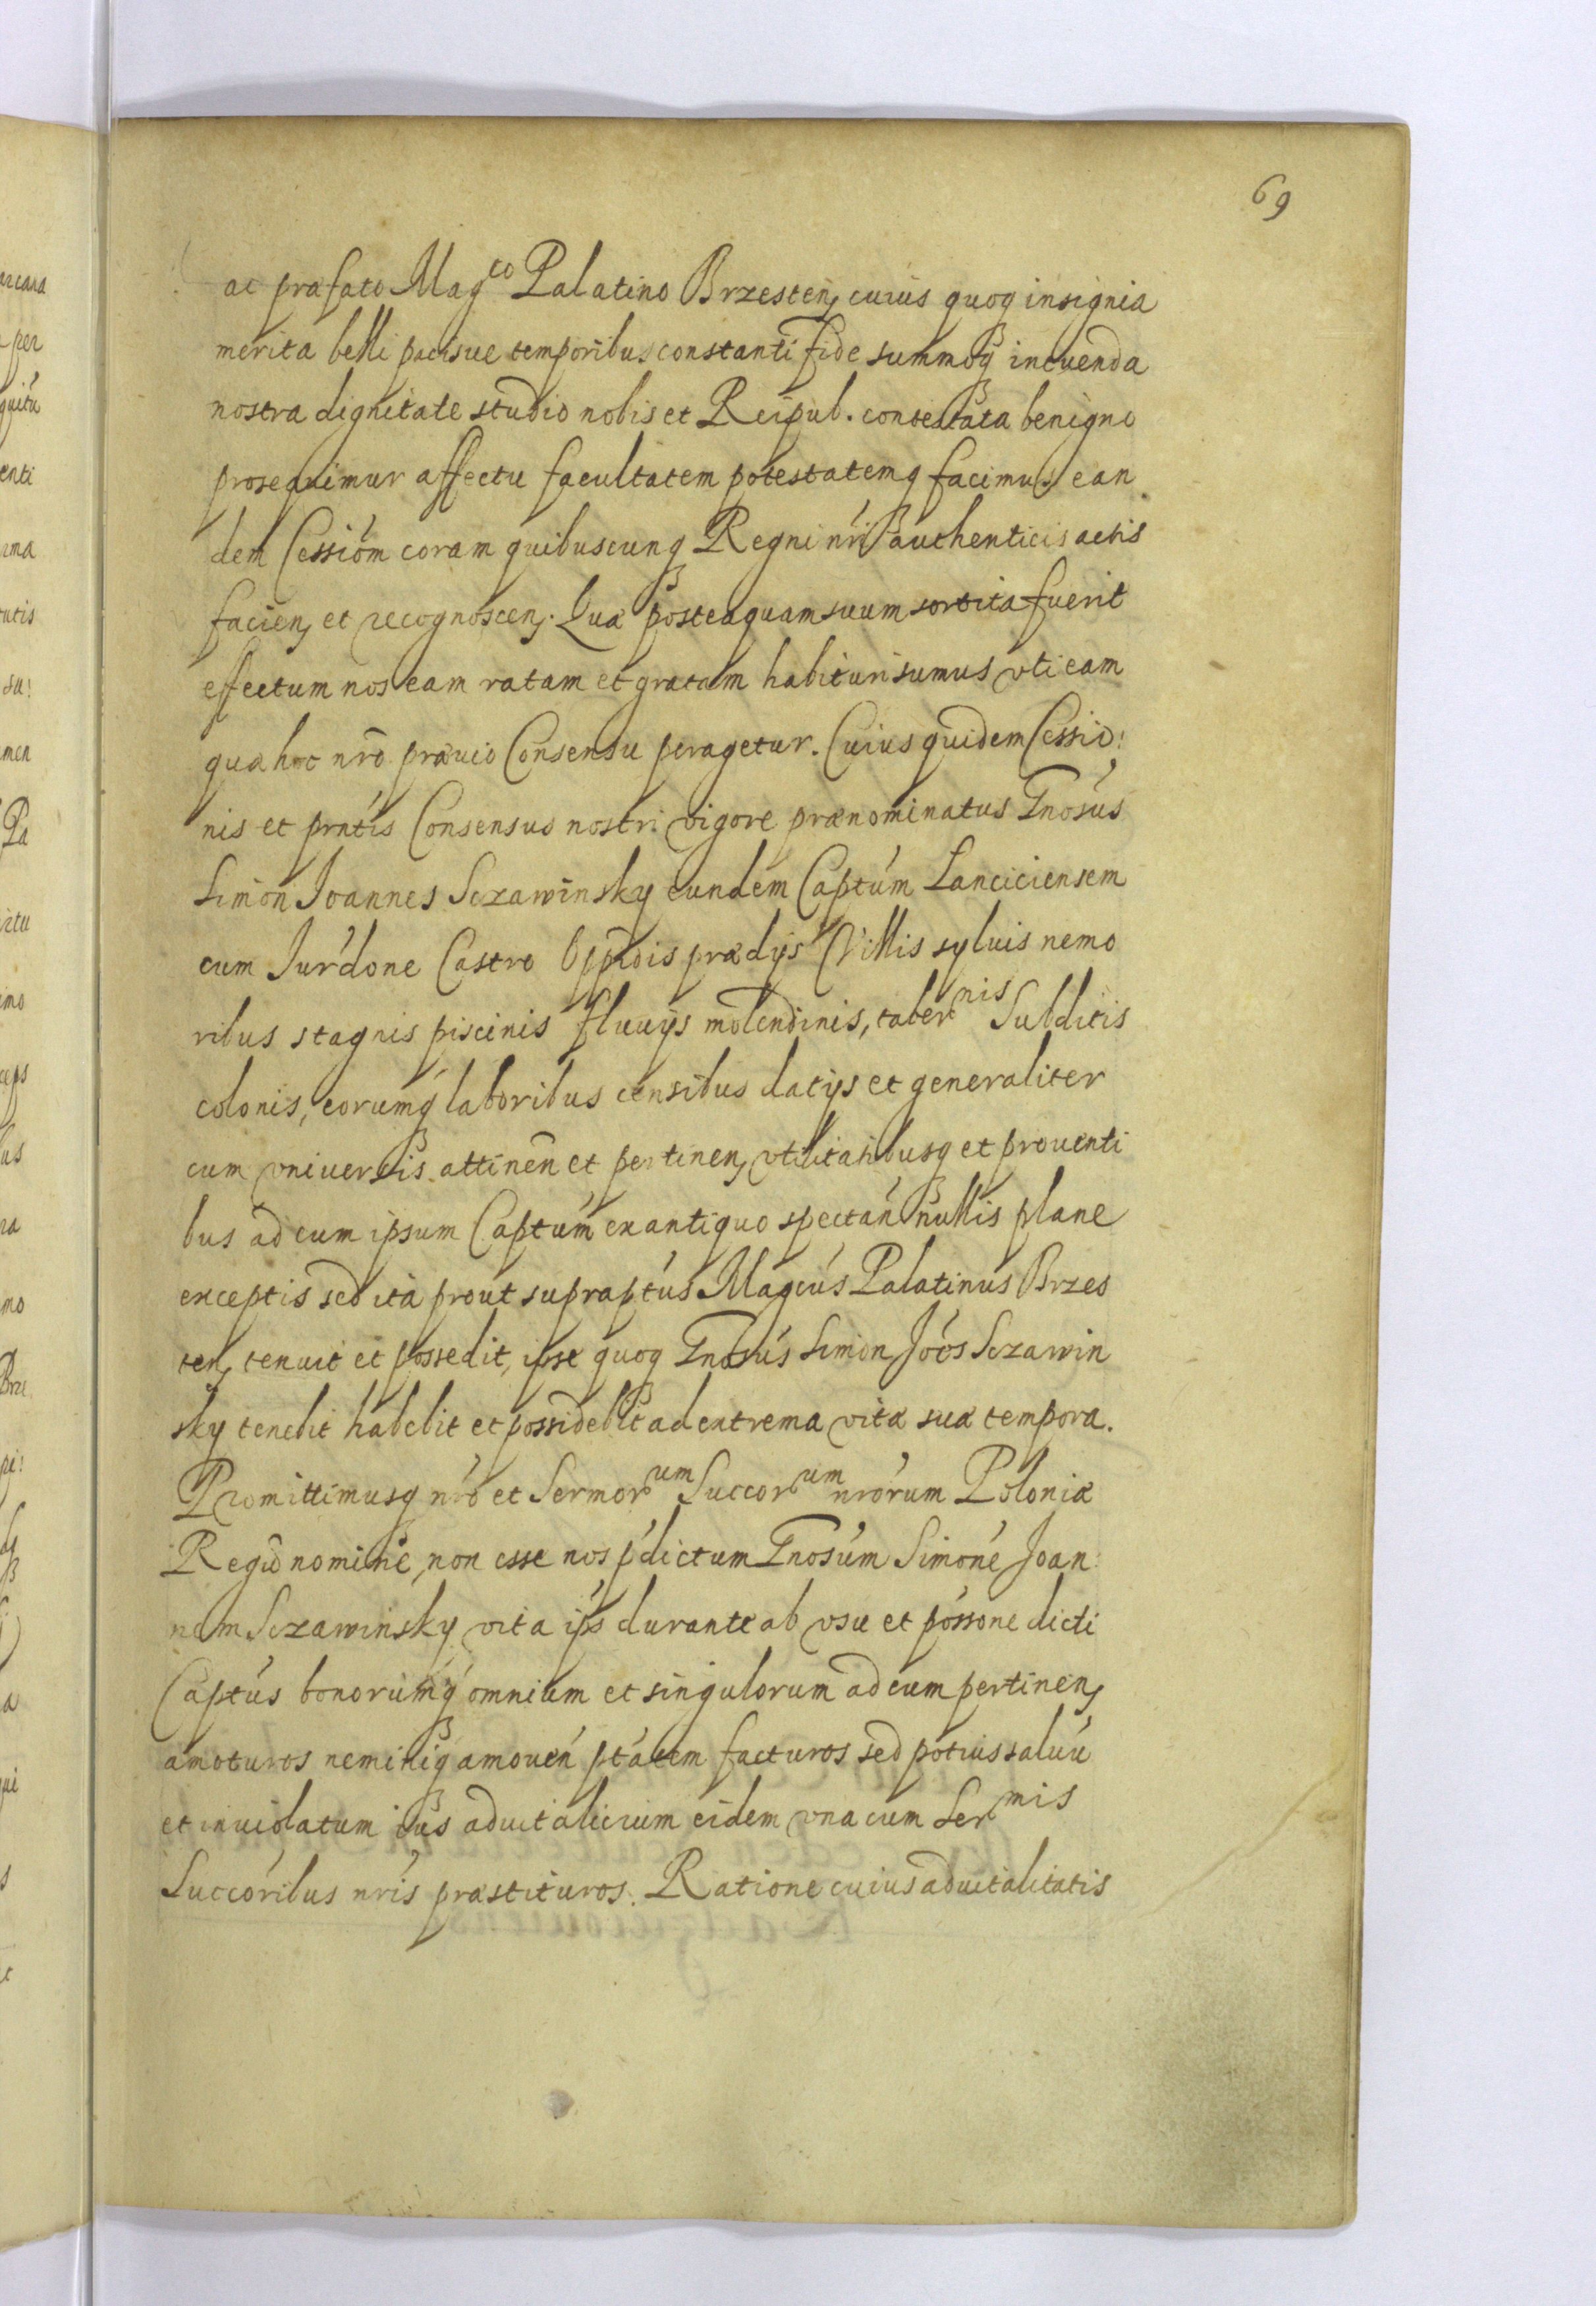 69
ac præfato Mag^co Palatino Brzesten, cuius quoq insignia
merita belli pacisue temporibus constanti fide summoq in tuenda
nostra dignitate studio nobis et Reipub. contestata benigno
prosequimur affectu facultatem potestatemq facimus ean
dem Cessiom coram quibuscunq Regni nri authenticis actis
facien, et recognoscen,. Quæ posteaquam suum sortita fuerit
effectum nos eam ratam et gratam habituri sumus vti eam
quæ hoc nro præuio Consensu peragetur. Cuius quidem Cessio:
nis et prntis Consensus nostri vigore prænominatus Gnosus
Simon Joannes Sczawinsky eundem Captum Lanciciensem
cum Jurdone Castro Oppidis prædijs Villis syluis nemo
ribus stagnis piscinis fluuijs molendinis, tabernis Subditis
colonis, eorumq laboribus censibus datijs et generaliter
cum vniuersis attinen et pertinen, vtilitatibusq et prouenti
bus ad eum ipsum Captum ex antiquo spectan nullis plane
exceptis sed ita prout supraptus Magcus Palatinus Brzes
ten, tenuit et possedit, ipse quoq Gnosus Simon Joos Sczawin
sky tenebit habebit et possidebit ad extrema vitæ suæ tempora.
Promittimusq nro et Sermor^um Succor^um nrorum Poloniæ
Regū nomine, non esse nos pdictum Gnosum Simone Joan:
nem Sczawinsky vita ips durante ab vsu et possone dicti
Captus bonorumq omnium et singulorum ad eum pertinen,
amoturos neminiq amouen ptatem facturos sed potius saluu
et inuiolatum ius aduitalicium eidem vna cum Ser^mis
Succoribus nris præstituros. Ratione cuius aduitalitatis